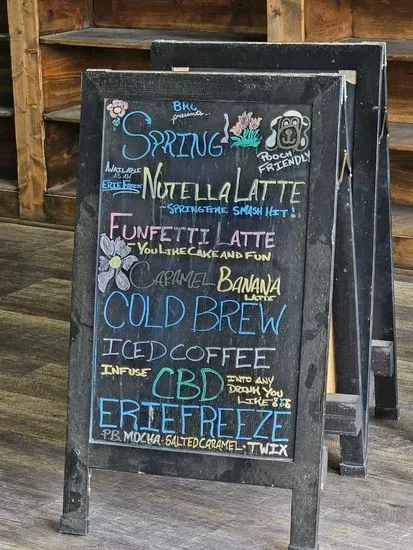 BRC
presents...
SPRING
POOCH
FRIENDLY
AVAILABLE
AS AN
ERIEFREEZE
NUTELLA LATTE
- SPRINGTIME SMASH HIT!
FUNFETTI LATTE
- YOU LIKE CAKE AND FUN
CARAMEL BANANA
LATTE
COLD BREW
ICED COFFEE
INFUSE CBD INTO ANY
DRINK YOU
LIKE!!
ERIEFREEZE
P.B. MOCHA · SALTED CARAMEL · TWIX